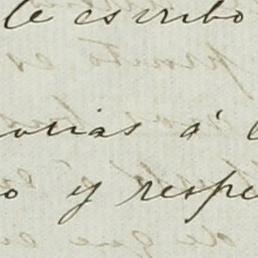 le escribo
orias á l
o y respe